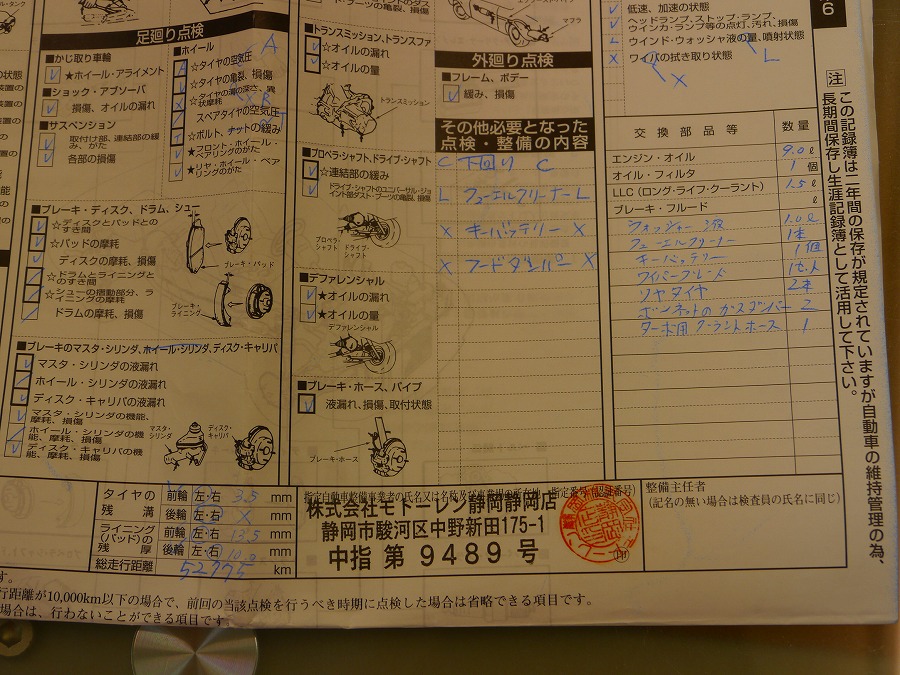 足廻り点検
■かじ取り車輪
★ホイール・アライメント
■ショック・アブソーバ
損傷、オイルの漏れ
■サスペンション
取付け部、連結部の緩み、がた
各部の損傷
■ホイール
A
☆タイヤの空気圧
☆タイヤの亀裂、損傷
☆タイヤの溝の深さ、異状摩耗
スペアタイヤの空気圧
☆ボルト、ナットの緩み
★フロント・ホイール・ベアリングのがた
★リヤ・ホイール・ベアリングのがた
■ブレーキ・ディスク、ドラム、シュー
☆ディスクとパッドとのすき間
☆パッドの摩耗
ディスクの摩耗、損傷
☆ドラムとライニングとのすき間
☆シューの摺動部分、ライニングの摩耗
ドラムの摩耗、損傷
ブレーキ・パッド
ブレーキ・ライニング
■ブレーキのマスタ・シリンダ、ホイール・シリンダ、ディスク・キャリパ
マスタ・シリンダの液漏れ
ホイール・シリンダの液漏れ
ディスク・キャリパの液漏れ
マスタ・シリンダの機能、摩耗、損傷
ホイール・シリンダの機能、摩耗、損傷
ディスク・キャリパの機能、摩耗、損傷
マスタ・シリンダ
ディスク・キャリパ
■トランスミッション、トランスファ
☆オイルの漏れ
☆オイルの量
トランスミッション
■プロペラ・シャフト、ドライブ・シャフト
☆連結部の緩み
ドライブ・シャフトのユニバーサル・ジョイント部ダスト・ブーツの亀裂、損傷
プロペラ・シャフト
ドライブ・シャフト
■デファレンシャル
★オイルの漏れ
★オイルの量
デファレンシャル
■ブレーキ・ホース、パイプ
液漏れ、損傷、取付状態
ブレーキ・ホース
マフラ
外廻り点検
■フレーム、ボデー
緩み、損傷
その他必要となった
点検・整備の内容
C 下回り C
L フューエルクリーナー L
X キーバッテリー X
X フードダンパー X
低速、加速の状態
ヘッドランプ、ストップ・ランプ、
ウインカ・ランプ等の点灯、汚れ、損傷
ウインド・ウォッシャ液の量、噴射状態
L
ワイパの拭き取り状態
X
交換部品等 数量
エンジン・オイル 9.0 ℓ
オイル・フィルタ 1 個
LLC（ロング・ライフ・クーラント） 1.5 ℓ
ブレーキ・フルード ℓ
ウォッシャー液 1.0ℓ
フューエルクリーナー 1本
キーバッテリー 1個
ワイパーブレード
リヤタイヤ 2本
ボンネットのガスダンパー 2
ターボ用クーラントホース 1
6
注 この記録簿は二年間の保存が規定されていますが自動車の維持管理の為、
長期間保存し生涯記録簿として活用して下さい。
タイヤの残溝 前輪 左・右 3.5 mm
後輪 左・右 X mm
ライニング（パッド）の残厚 前輪 左・右 13.5 mm
後輪 左・右 10.0 mm
総走行距離 52975 km
株式会社モトーレン静岡静岡店
静岡市駿河区中野新田175-1
中指 第 9489 号
整備主任者
（記名の無い場合は検査員の氏名に同じ）
行距離が10,000km以下の場合で、前回の当該点検を行うべき時期に点検した場合は省略できる項目です。
場合は、行わないことができる項目です。